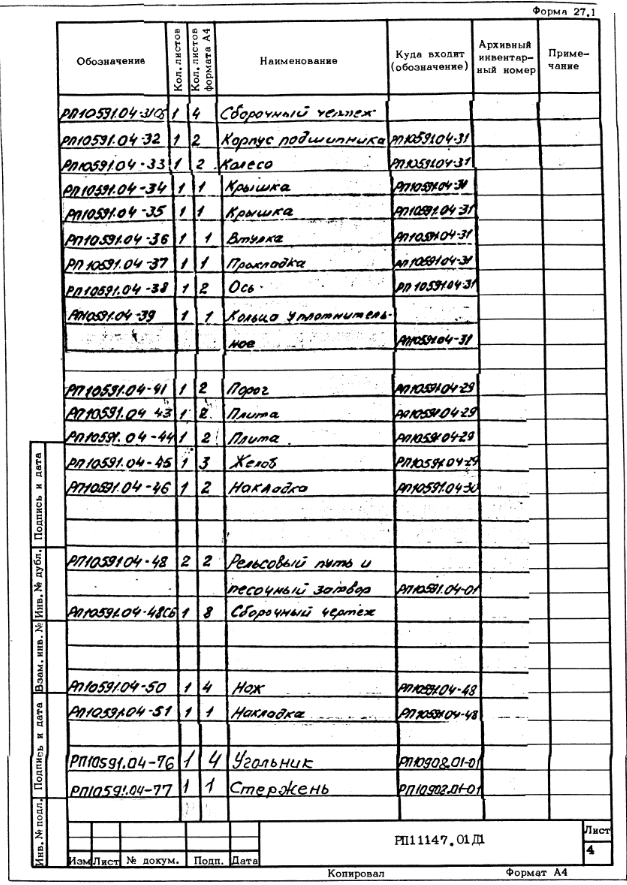 Форма 27.1
Обозначение Кол. листов Кол. листов формата А4 Наименование Куда входит (обозначение) Архивный инвентарный номер Примечание
РП10591.04-31СБ 1 4 Сборочный чертеж
РП10591.04-32 1 2 Корпус подшипника РП10591.04-31
РП10591.04-33 1 2 Колесо РП10591.04-31
РП10591.04-34 1 1 Крышка РП10591.04-31
РП10591.04-35 1 1 Крышка РП10591.04-31
РП10591.04-36 1 1 Втулка РП10591.04-31
РП10591.04-37 1 1 Прокладка РП10591.04-31
РП10591.04-38 1 2 Ось РП10591.04-31
РП10591.04-39 1 1 Кольцо уплотнитель-
ное РП10591.04-31
РП10591.04-41 1 2 Порог РП10591.04-29
РП10591.04-43 1 2 Плита РП10591.04-29
РП10591.04-44 1 2 Плита РП10591.04-29
РП10591.04-45 1 3 Желоб РП10591.04-29
РП10591.04-46 1 2 Накладка РП10591.04-30
РП10591.04-48 2 2 Рельсовый путь и
песочный затвор РП10591.04-01
РП10591.04-48СБ 1 8 Сборочный чертеж
РП10591.04-50 1 4 Нож РП10591.04-48
РП10591.04-51 1 1 Накладка РП10591.04-48
РП10591.04-76 1 4 Угольник РП10902.01-01
РП10591.04-77 1 1 Стержень РП10902.01-01
Инв. № подл. Подпись и дата Взам. инв. № Инв. № дубл. Подпись и дата
РП11147.01Д1
Лист
4
Изм Лист № докум. Подп. Дата
Копировал Формат А4